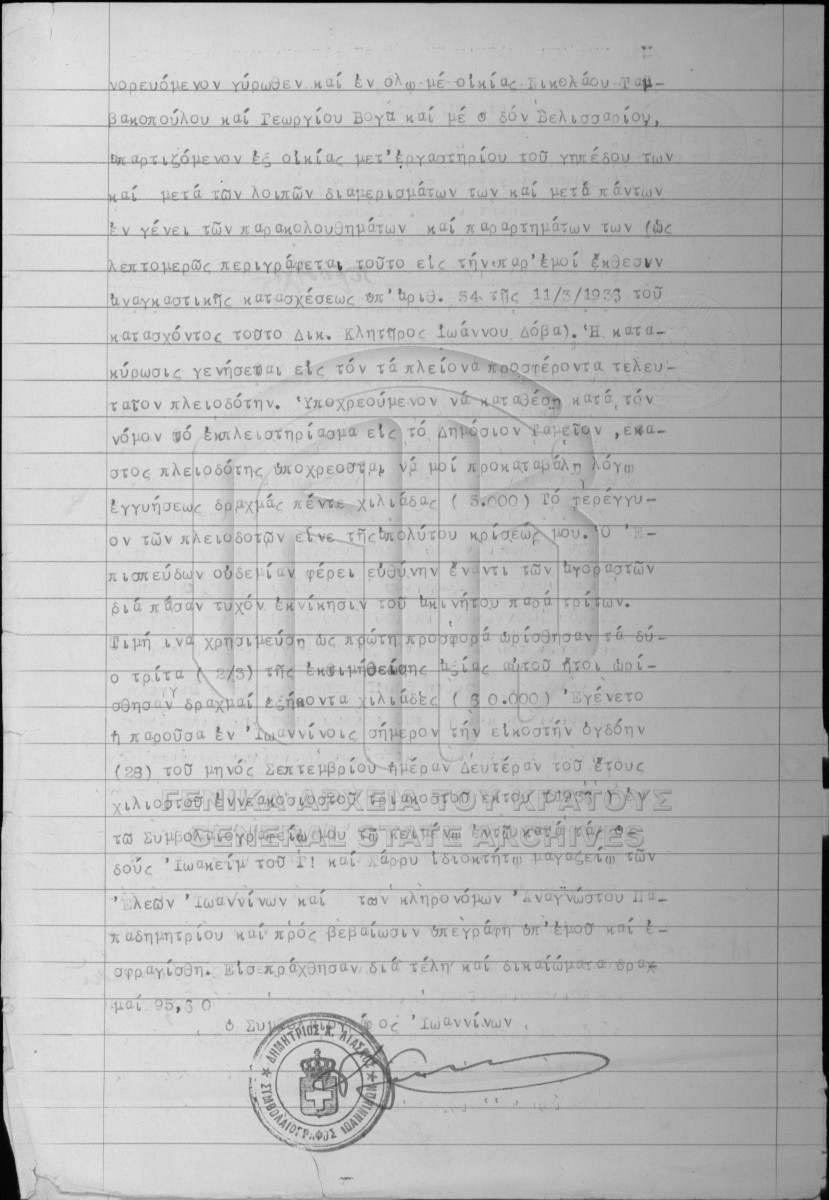 νορευόμενον γύρωθεν καί ἐν ὅλῳ μέ οἰκίας Νικολάου Ταμ-
βακοπούλου καί Γεωργίου Βογα καί μέ ὁ δόν Βελισσαρίου,
ἀπαρτιζόμενον ἐξ οἰκίας μετ'ἐργαστηρίου τοῦ γηπέδου των
καί μετά τῶν λοιπῶν διαμερισμάτων των καί μετά πάντων
ἐν γένει τῶν παρακολουθημάτων καί παραρτημάτων των (ὡς
λεπτομερῶς περιγράφεται τοῦτο εἰς τήν παρ'ἐμοί ἔκθεσιν
ἀναγκαστικῆς κατασχέσεως ὑπ'ἀριθ. 54 τῆς 11/3/1933 τοῦ
κατασχόντος τοῦτο Δικ. Κλητῆρος Ἰωάννου Δόβα). Ἡ κατα-
κύρωσις γενήσεται εἰς τόν τά πλείονα προσφέροντα τελευ-
ταῖον πλειοδότην. Ὑποχρεούμενον νά καταθέσῃ κατά τόν
νόμον τό ἐκπλειστηρίασμα εἰς τό Δημόσιον Ταμεῖον , ἑκα-
στος πλειοδότης ὑποχρεοῦται νά μοί προκαταβάλῃ λόγῳ
ἐγγυήσεως δραχμάς πέντε χιλιάδας ( 5.000) Τό φερέγγυ-
ον τῶν πλειοδοτῶν εἶνε τῆς ἀπολύτου κρίσεώς μου. Ὁ Ἐ-
πισπεύδων οὐδεμίαν φέρει εὐθύνην ἔναντι τῶν ἀγοραστῶν
διά πᾶσαν τυχόν ἐκνίκησιν τοῦ ἀκινήτου παρά τρίτων.
Τιμή ἱνα χρησιμεύσῃ ὡς πρώτη προσφορά ὡρίσθησαν τά δύ-
ο τρίτα ( 2/3) τῆς ἐκτιμηθείσης ἀξίας αὐτοῦ ἤτοι ὡρί-
σθησαν δραχμαί ἑξήκοντα χιλιάδες ( 0.000) Ἐγένετο
ἡ παροῦσα ἐν Ἰωαννίνοις σήμερον τήν εἰκοστήν ὀγδόην
(28) τοῦ μηνός Σεπτεμβρίου ἡμέραν Δευτέραν τοῦ ἔτους
χιλιοστοῦ ἐννεακοσιοστοῦ τριακοστοῦ ἕκτου (1936 ) ἐν
τῷ Συμβολαιογραφείῳ μου τῷ κειμένῳ ἐν τῷ κατά τάς ὁ-
δούς Ἰωακείμ τοῦ Γ! καί Χάρρυ ἰδιοκτήτῳ μαγαζείῳ τῶν
Ἐλεῶν Ἰωαννίνων καί τῶν κληρονόμων Ἀναγνώστου Πα-
παδημητρίου καί πρός βεβαίωσιν ὑπεγράφη ὑπ'ἐμοῦ καί ἐ-
σφραγίσθη. Εἰσεπράχθησαν διά τέλη καί δικαιώματα δραχ
μαί 95,30
Ὁ Συμβολαιογράφος Ἰωαννίνων
ΔΗΜΗΤΡΙΟΣ Λ. ΛΙΑΣΚΟΣ
ΣΥΜΒΟΛΑΙΟΓΡΑΦΟΣ ΙΩΑΝΝΙΝΩΝ
ΓΕΝΙΚΑ ΑΡΧΕΙΑ ΤΟΥ ΚΡΑΤΟΥΣ
GENERAL STATE ARCHIVES